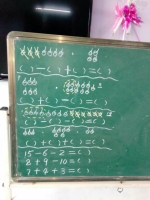 ( ) - ( ) + ( ) = ( )
( ) + ( ) - ( ) = ( )
( ) - ( ) - ( ) = ( )
( ) + ( ) + ( ) = ( )
15 - 6 - 2 = ( )
2 + 9 - 10 = ( )
7 + 4 + 3 = ( )